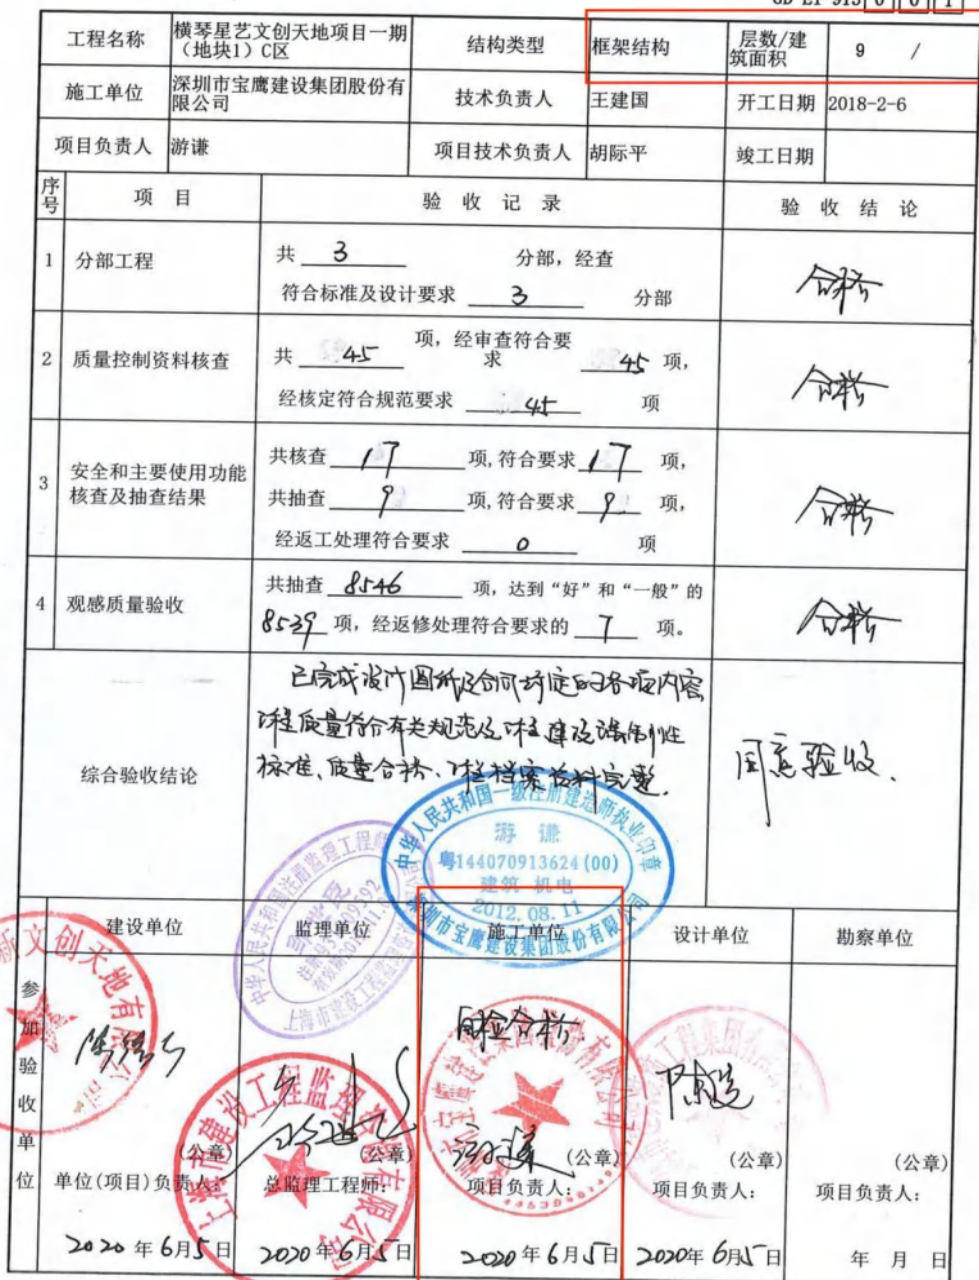 GD-E1-913 0 0 1
工程名称 横琴星艺文创天地项目一期（地块1）C区 结构类型 框架结构 层数/建筑面积 9 /
施工单位 深圳市宝鹰建设集团股份有限公司 技术负责人 王建国 开工日期 2018-2-6
项目负责人 游谦 项目技术负责人 胡际平 竣工日期
序号 项 目 验 收 记 录 验 收 结 论
1 分部工程 共 3 分部，经查
符合标准及设计要求 3 分部
合格
2 质量控制资料核查 共 45 项，经审查符合要求 45 项，
经核定符合规范要求 45 项
合格
3 安全和主要使用功能核查及抽查结果
共核查 17 项,符合要求 17 项，
共抽查 9 项,符合要求 9 项，
经返工处理符合要求 0 项
合格
4 观感质量验收 共抽查 8546 项，达到“好”和“一般”的
8539 项，经返修处理符合要求的 7 项。
合格
综合验收结论
已完成设计图纸及合同约定的各项内容
工程质量符合有关规范及工程建设强制性
标准、质量合格、工程档案资料完整.
同意验收.
中华人民共和国一级注册建造师执业印章
游 谦
粤144070913624(00)
建筑 机电
2012.08.11
深圳市宝鹰建设集团股份有限公司
中华人民共和国注册监理工程师
参加验收单位
建设单位 监理单位 施工单位 设计单位 勘察单位
文创天地有限公
上海市建设工程监理咨询有限公司
自检合格.
(公章) (公章) (公章) (公章) (公章)
单位(项目)负责人: 总监理工程师: 项目负责人: 项目负责人: 项目负责人:
2020年6月5日 2020年6月5日 2020年6月5日 2020年6月5日 年 月 日